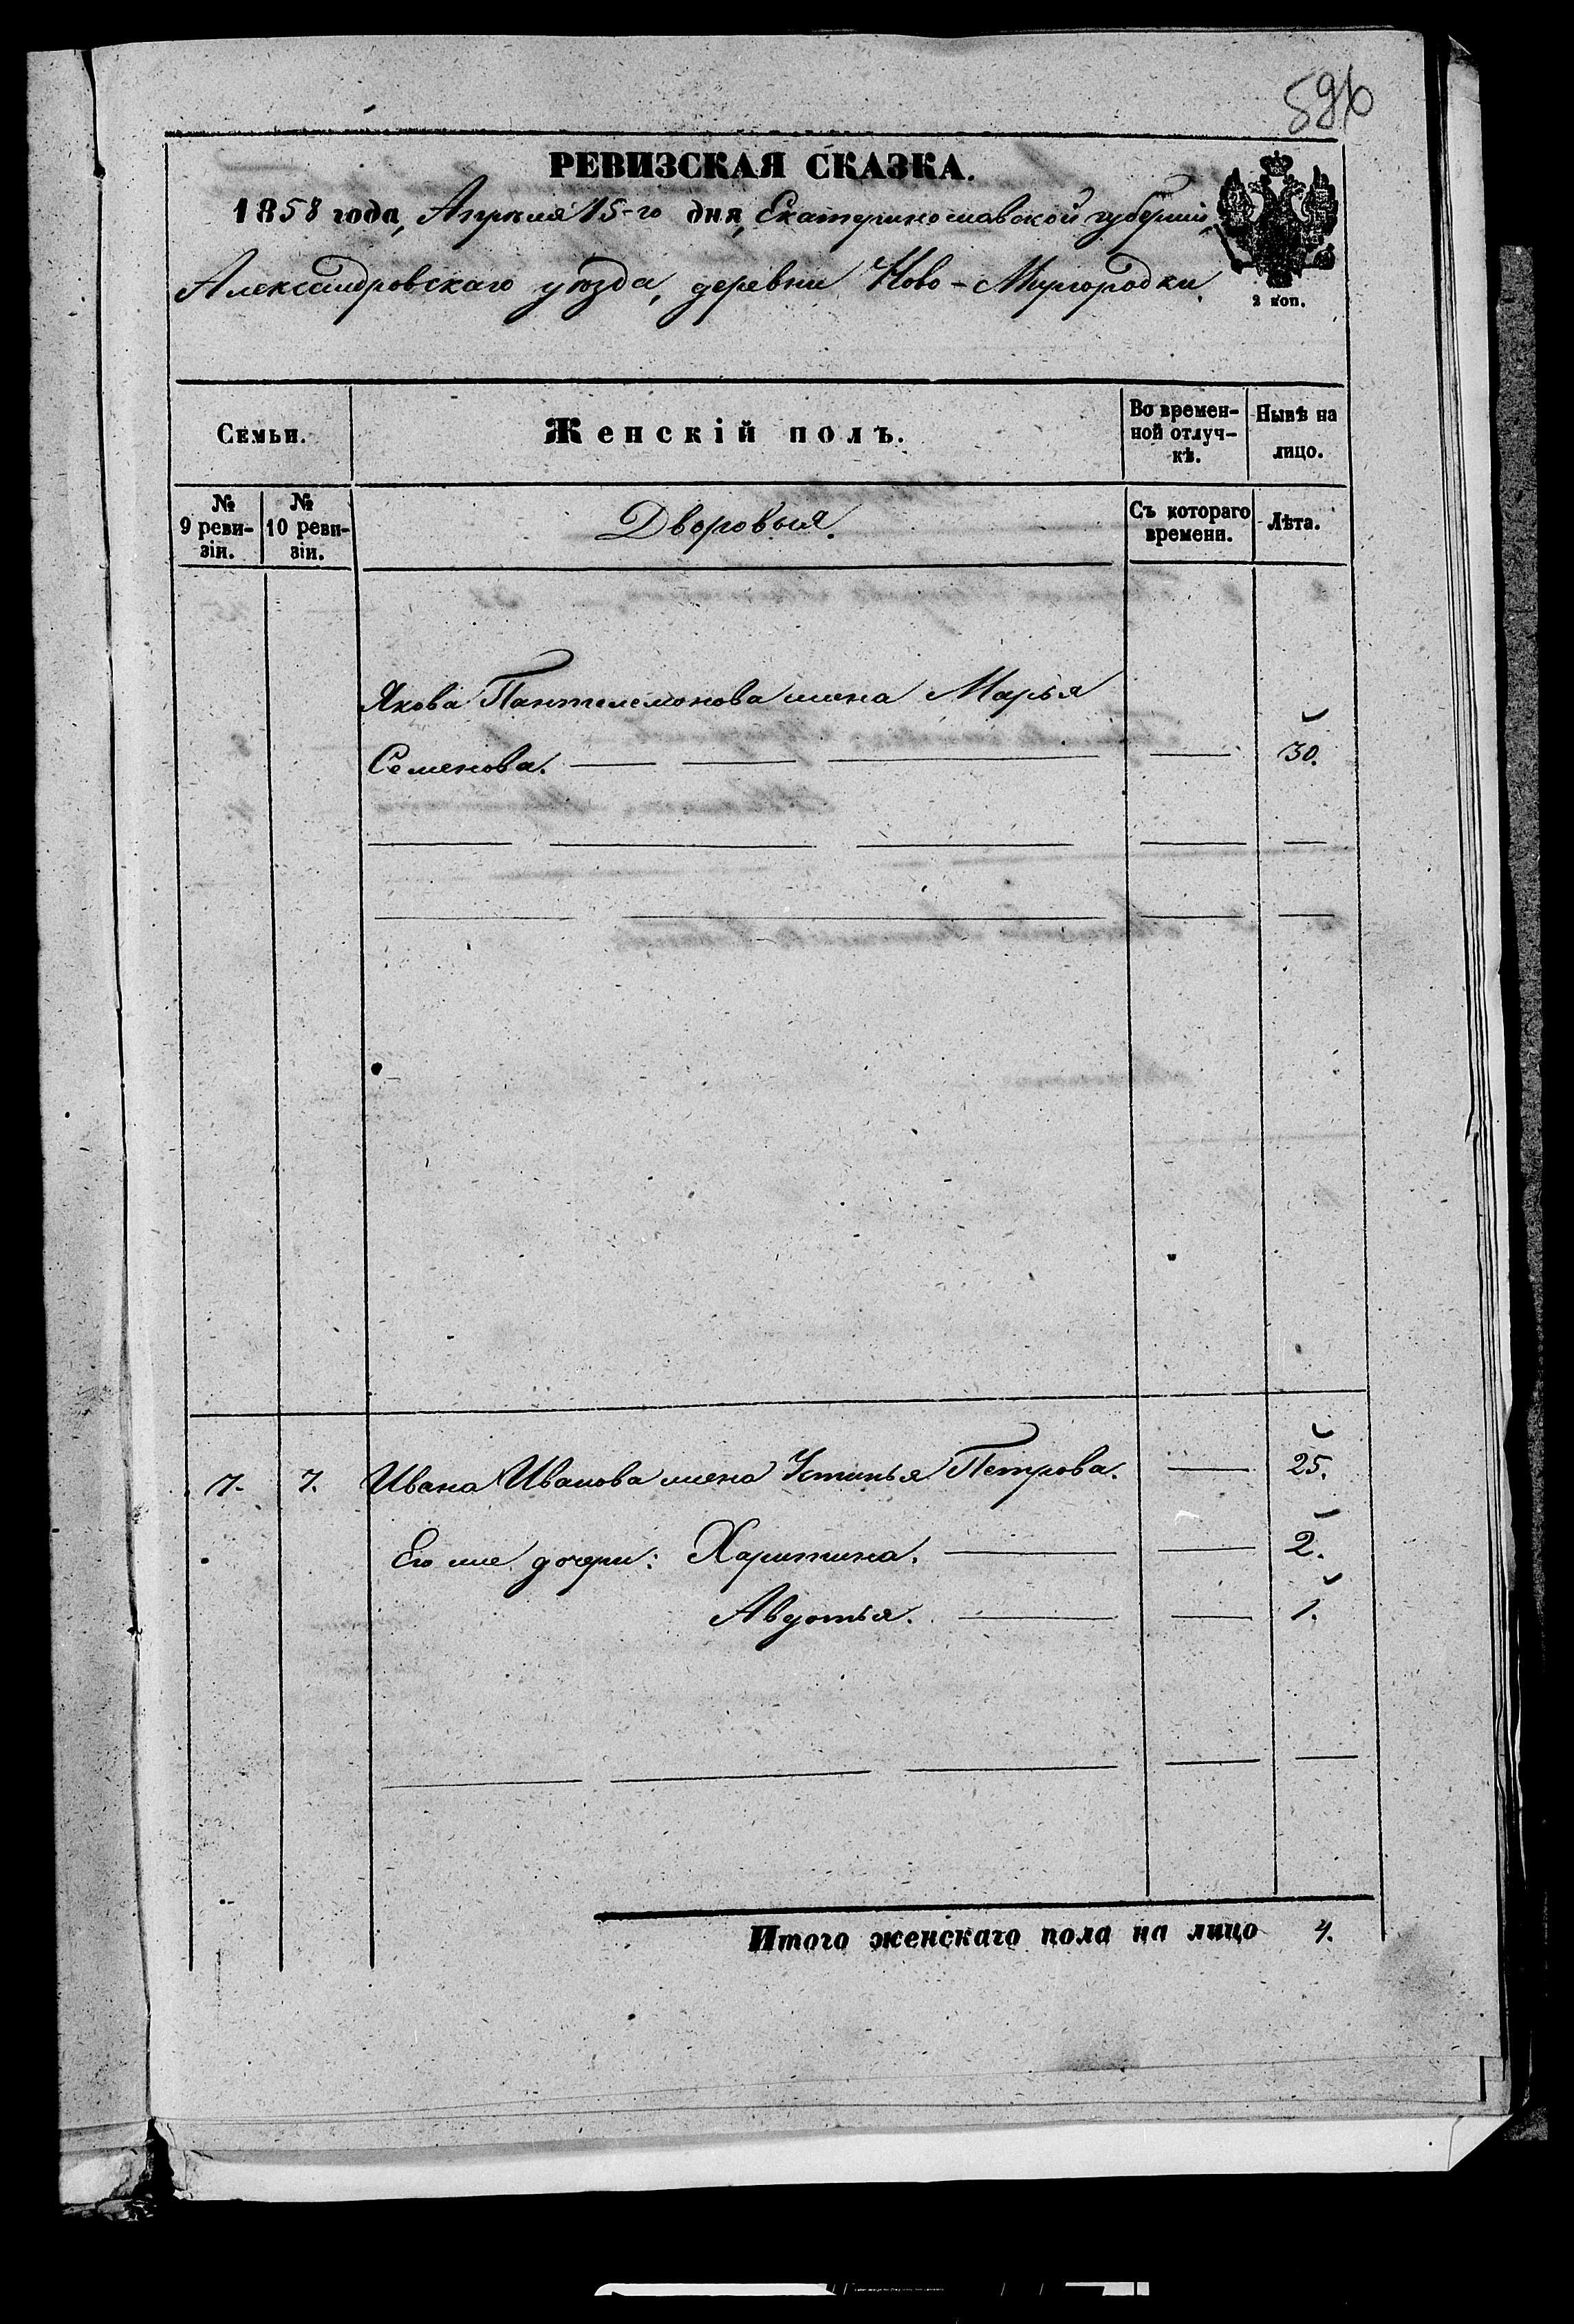 596
РЕВИЗСКАЯ СКАЗКА.
1858 года, Апреля 15-го дня, Екатеринославской губернiи,
Александровскаго уѣзда, деревни Ново-Миргородки.
2 коп.
Семьи.
Женскiй полъ.
Во времен-
ной отлуч-
кѣ.
Нынѣ на
лицо.
№
9 реви-
зiи.
№
10 реви-
зiи.
Дворовыя.
Съ котораго
времени.
Лѣта.
Якова Пантелемонова жена Марья
Семенова. 30.
7. 7. Ивана Иванова жена Устинья Петрова. 25.
Его же дочери: Харитина. 2.
Авдотья. 1.
Итого женскаго пола на лицо 4.